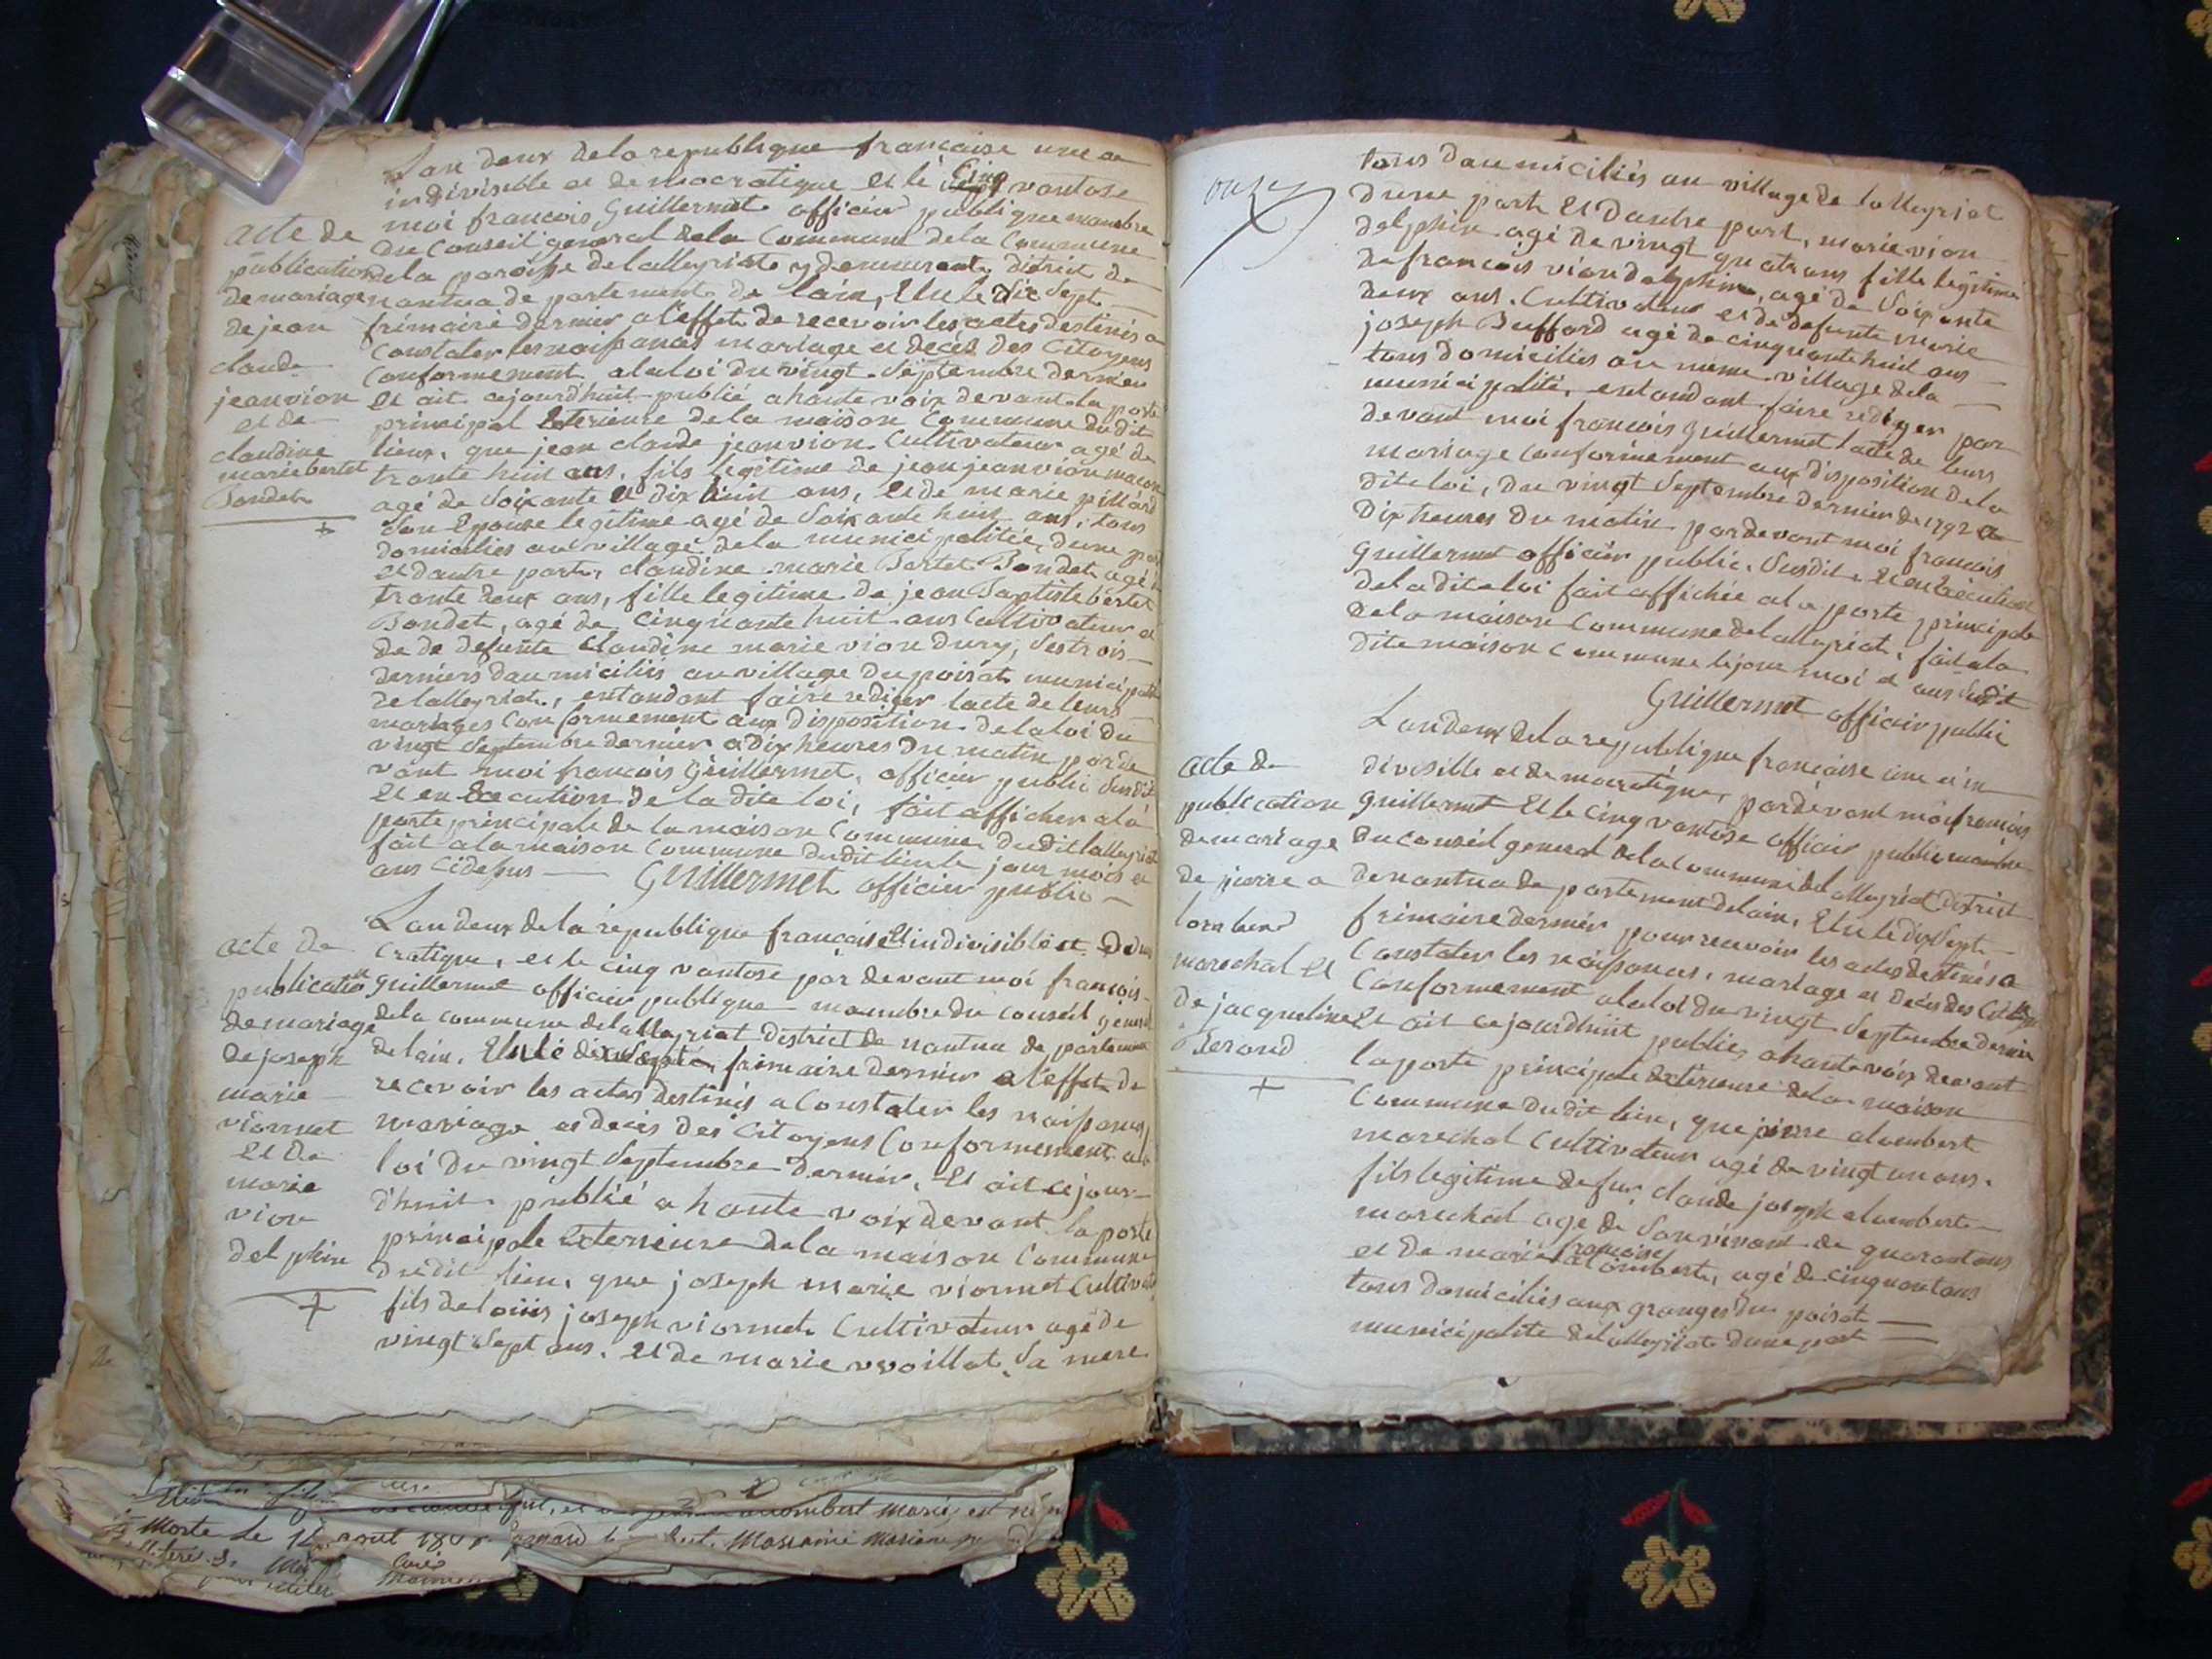 Lan deux dela republique francaise une et
indivisible et democratique et le Cinq vantose
moi francois Guillermet officier publique manbre
du Conseil general dela Commune dela Commune
dela paroisse delalleyriat y demeurant, district de
nantua departement de lain, Elu le dix sept
frimaire dernier a l'effet de recevoir les actes destinés a
Constater les naissances mariage et decés des Citoyens
Conformement alaloi du vingt Septembre dernier
et ait cejourd'huit publié ahaute voix devant la porte
principal Exterieure de la maison Commune dudit
lieux, que jean claude jeanvion Cultivateur agé de
trante huit ans, fils legitime de jean jeanvion macon
agé de Soixante et dix huit ans, et de marie pillard
Son Epouse legitime agé de Soixante huit ans, tous
domicilies au village dela municipalitée, dune part
et dautre part, claudine marie Bertet Bondet agé de
trante deux ans, fille legitime de jean Baptiste bertet
Bondet, agé de Cinquante huit ans Cultivateur et
de de defunte Claudine marie vion dury, Ses trois
derniers daumiciliés au village du poisat municipalité
delalleyriat, entandant faire rediger lacte de leurs
mariages Conformement aux disposition delaloi du
vingt Septembre dernier adix heures du matin parde
vant moi francois Guillermet, officier public Susdit
et en Execution de la dite loi, fait afficher ala
porte principale de la maison Commune dudit lalleyriat
fait ala maison Commune dudit lieu le jour mois et
ans cidessus Guillermet officier public
acte de
publication
de mariage
de jean
claude
jeanvion
et de
claudine
marie bertet
Bondet
Lan deux de la republique francaise Et indivisible et Demo
cratique, et le cinq vantose par devant moi francois
Guillermet officier publique manbre du conseil general
dela commune delalleyriat District de nantua departement
delain, Elu le dix Sept frimaire dernier a l'effet de
recevoir les actes destinés a Constater les naissances
mariage et decés des Citoyens Conformement a la
loi du vingt Septembre dernier, Et ait cejour
d'huit publié a haute voix devant la porte
principale Exterieure dela maison Commune
dudit lieu, que joseph marie vionnet Cultivateur
fils de louis joseph vionnet Cultivateur agé de
vingt Sept ans, et de marie vuaillat, Sa mere
acte de
publication
de mariage
de joseph
marie
vionnet
et de
marie
vion
delphin
onze
tous daumiciliés au village de lalleyriat
dune part et dautre part, marie vion
delphin agé de vingt quatr ans fille legitime
de francois vion delphin, agé de Soixante
deux ans, Cultivateur et de defunte marie
joseph Buffard agé de cinquante huit ans
tous domicilies au meme village dela
municipalité, entandant faire rediger par
devant moi francois Guillermet lacte de leurs
mariage Conformement aux disposition dela
dite loi, du vingt Septembre dernier de 1792 a
Dix heures du matin pardevant moi francois
Guillermet officier public Susdit, et en Execution
de la dite loi fait affichée ala porte principale
dela maison Commune delalleyriat, fait ala
dite maison Commune le jour moi et ans Susdit
Guillermet officier public
Lan deux dela republique francaise une et in
divisible et democratique, pardevant moi francois
Guillermet et le cinq vantose officier public manbre
du conseil general dela commune delalleyriat district
de nantua departement delain, Elu le dix Sept
frimaire dernier pour recevoir les actes destinés a
Constater les naissances, mariage et decés des Citoyens
Conformement alaloi du vingt Septembre dernier
et ait cejourdhuit publié, ahaute voix devant
la porte principale Exterieure dela maison
Commune dudit lieu, que pierre alombert
marechal Cultivateur agé de vingt un ans,
fils legitime de fue claude joseph alombert
marechal agé de Sonvivant de quarant ans
et de marie francoise alombert, agé de cinquant ans
tous domiciliés aux granges du poisat
municipalité delalleyriat dune part
acte de
publication
de mariage
de pierre a
lombert
marechal et
de jacqueline
Berond
Morte le 12 aout